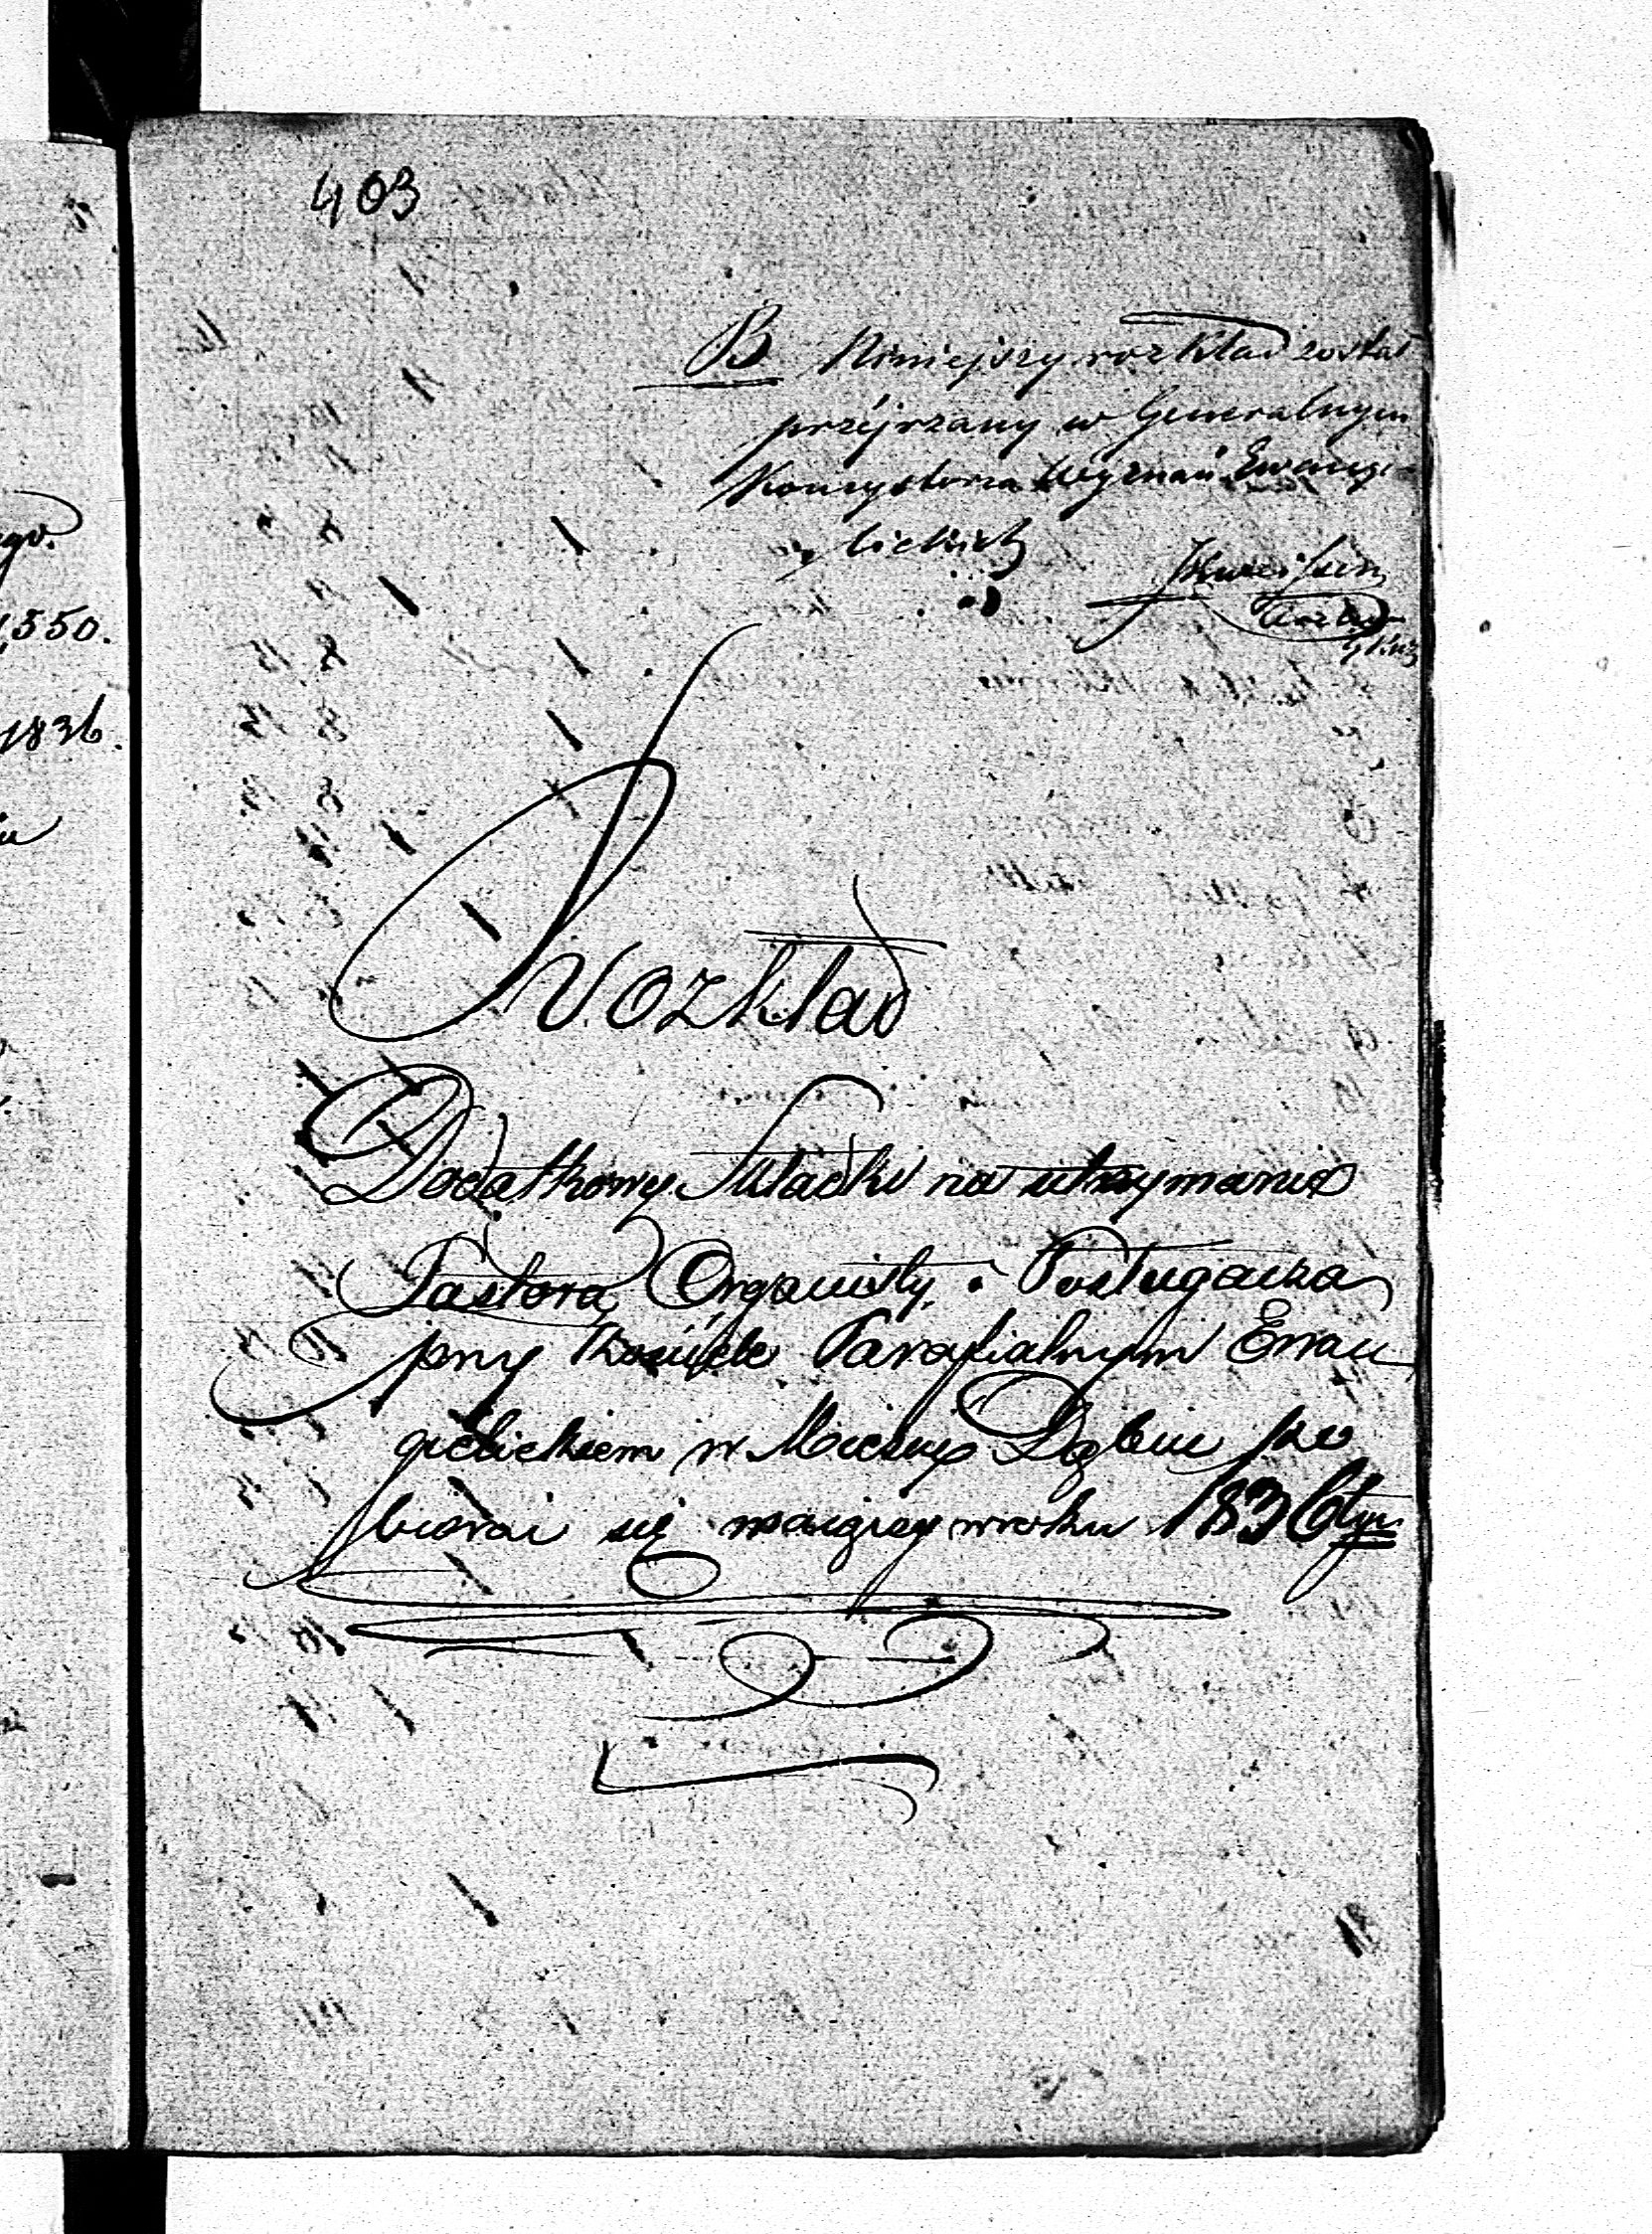 403
B Niniejszy rozkład został
przejrzany w Generalnym
Konsystorzu Wyznań Ewange-
lickich
Rozkład
Dodatkowy Składki na utrzymanie
Pastora, Organisty i Posługacza
przy Kościele Parafialnym Ewan
gielickiem w Mieście Dąbiu po
bierać się mającey w roku 1836tym
550.
1836.